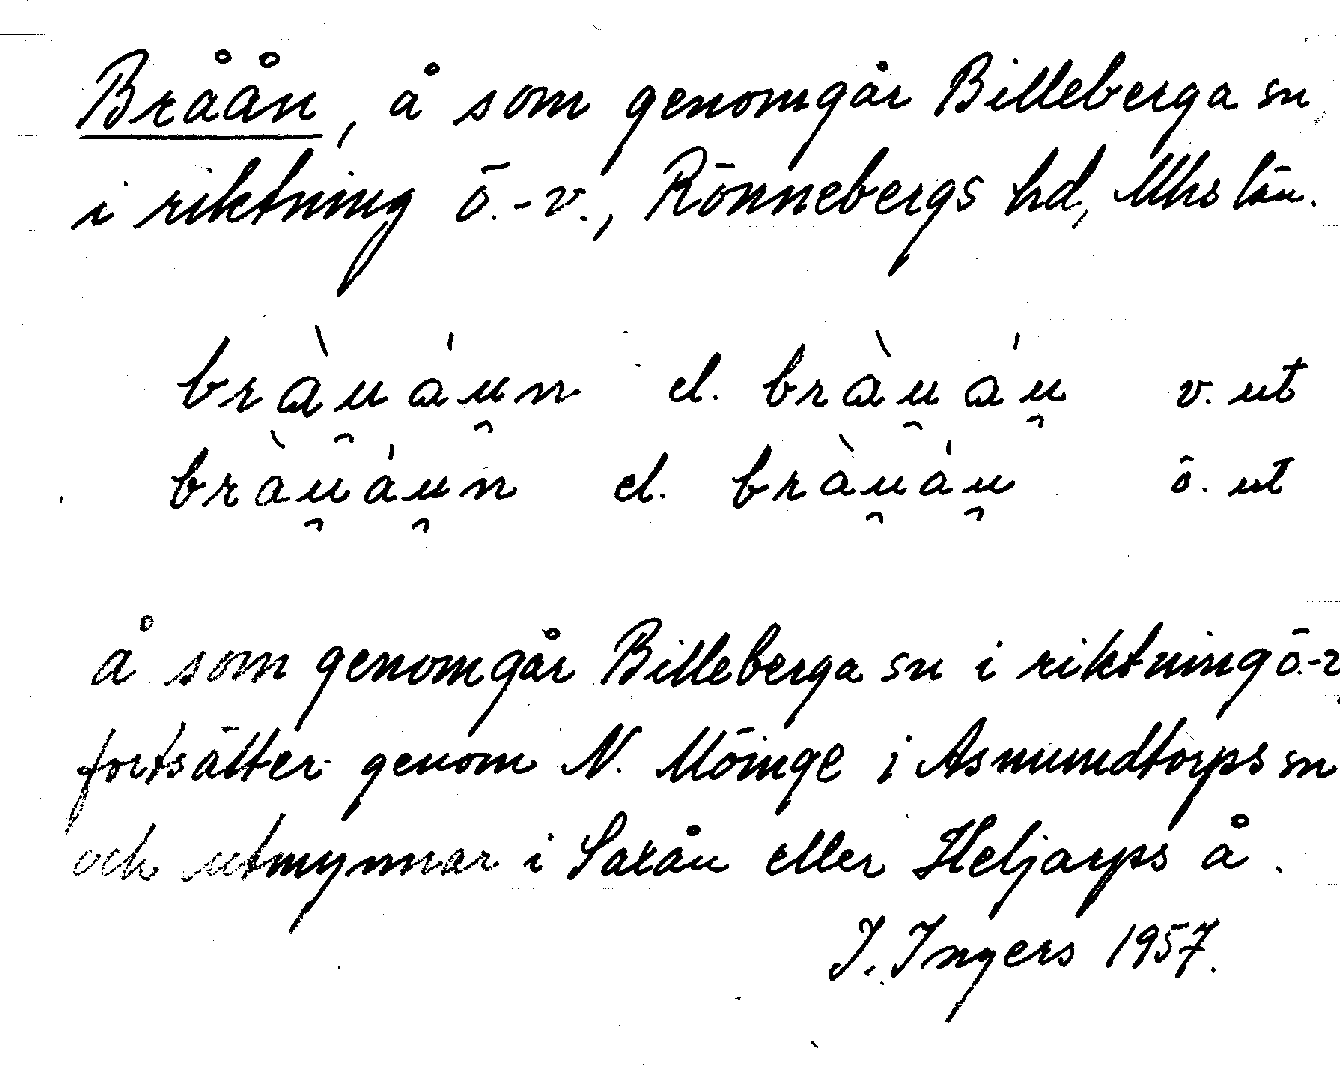 Bråån, å som genomgår Billeberga sn
i riktning ö.-v., Rönnebergs hd, Mhs län.
bràu̯áu̯n el. bràu̯áu̯ v. ut
bràu̯áu̯n el. bràu̯áu̯ ö. ut
å som genomgår Billeberga sn i riktning ö.-v
fortsätter genom N. Möinge i Asmundtorps sn
och utmynnar i Saxån eller Heljarps å.
I. Ingers 1957.